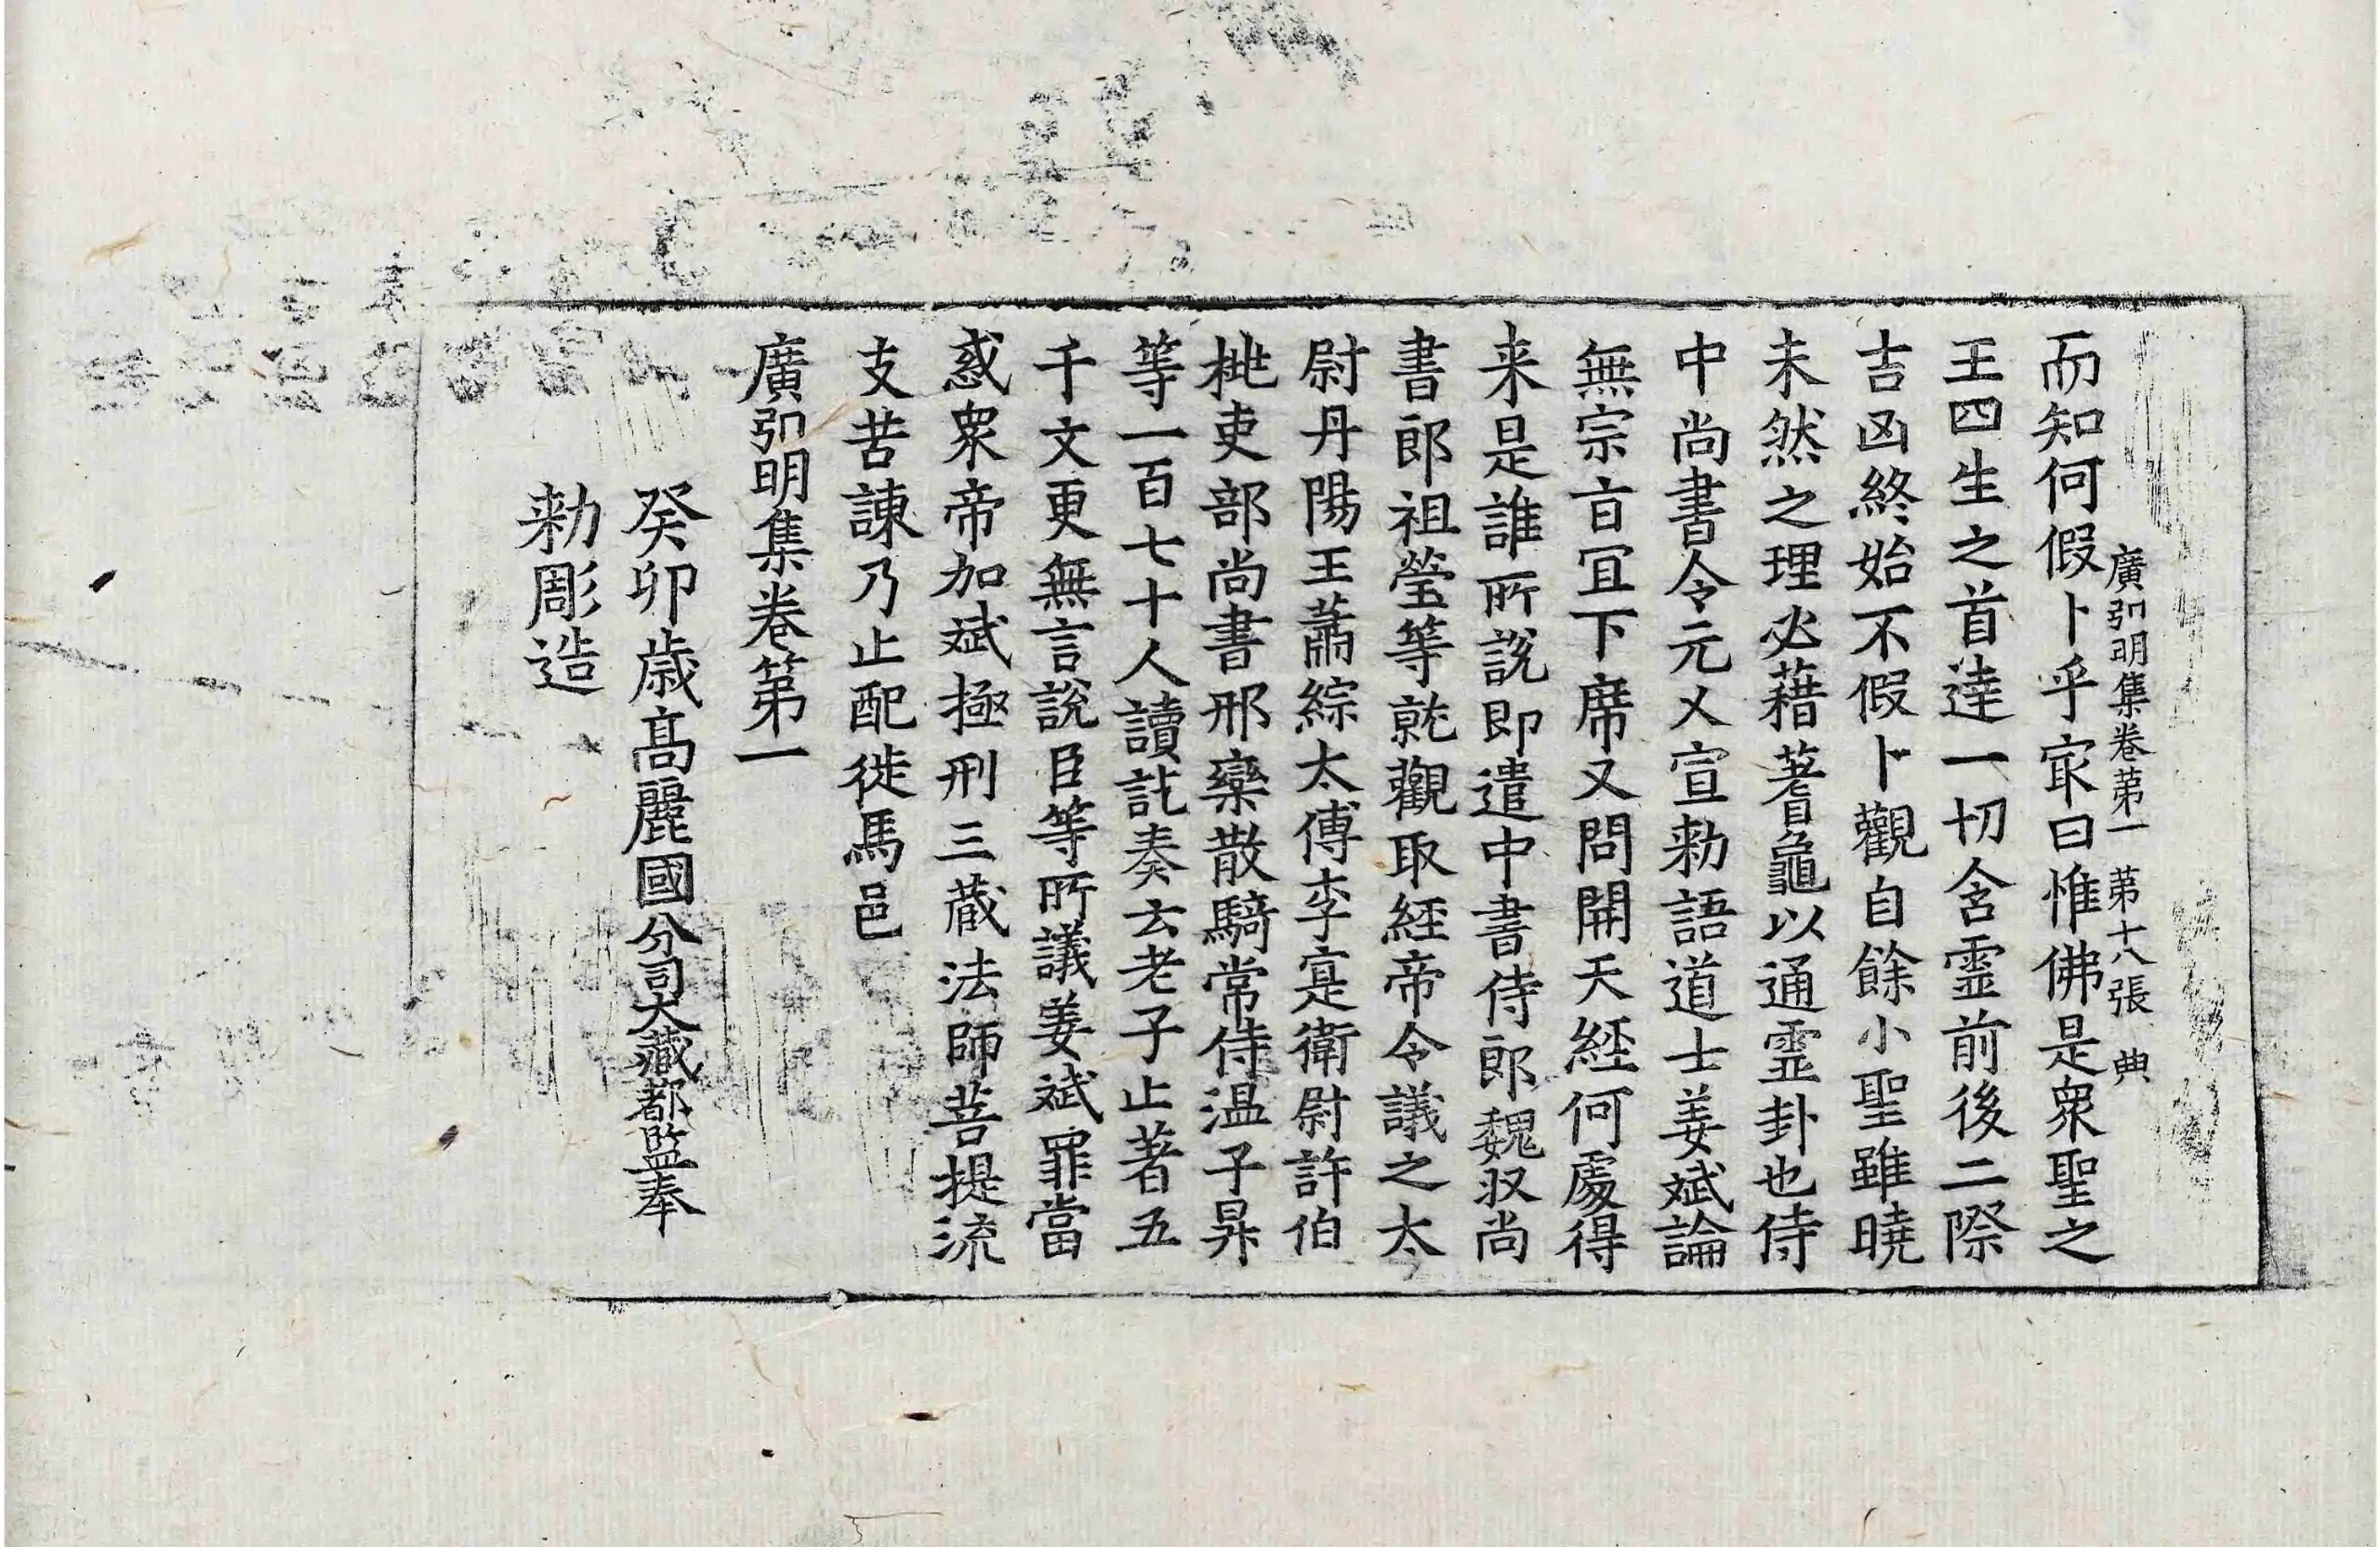 廣弘明集卷第一 第十八張 典
而知何假卜乎㝡曰惟佛是衆聖之
王四生之首達一切含霊前後二際
吉凶終始不假卜觀自餘小聖雖曉
未然之理必藉蓍龜以通霊卦也侍
中尚書令元乂宣勑語道士姜斌論
無宗旨冝下席又問開天經何處得
来是誰所說即遣中書侍郎魏収尚
書郎祖瑩等就觀取經帝令議之太
尉丹陽王蕭綜太傅李寔衛尉許伯
桃吏部尚書邢欒散騎常侍温子昇
等一百七十人讀訖奏云老子止著五
千文更無言說臣等所議姜斌罪當
惑衆帝加斌極刑三蔵法師菩提流
支苦諫乃止配徙馬邑
廣弘明集卷第一
癸卯歲高麗國分司大藏都監奉
勑彫造